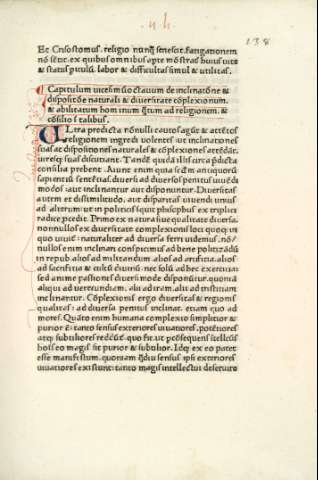 138
Et Crisostomus. religio nunq̃ senescit. fatigationem
nõ sētit. ex quibus omnibus apte mõstrat̃ huius vite
& status pitulũ. labor & difficultas simul & utilitas.
Capitulum vicesimũ octauum de inclinatõne &
dispositõne naturali & diuersitate cõplexionum.
& abilitatum hominum q̃ntum ad religionem. &
cõsilio ĩ talibus.
Ultra predicta nõnulli cautos agũt & attẽtos
religionem ingredi volentes ut inclinationes
suas ac dispositiones naturales & cõplexiones attẽdãt.
uiresq; suas discutiant. Tandẽ quedã illis circa p̃dicta
consilia prebent. Aiunt enim quia scd̃m antiquorũ
sapientũ sentẽtias. diuersi ad diuersos penitus viuẽdi
modos. aut inclinantur aut disponuntur. Diuersitas
autem et dissimilitudo. aut disparitas viuendi unius
ad alterum. ut in politicis iquit philosophus ex triplici
radice p̃cedit. Primo ex natiue qualitate diuersa.
nõ nulli ex diuersitate complexionis loci quoq; in
quo viuit̃: naturaliter ad diuersa ferri videmus. nõ/
nullos enim inclinari conspicimus ad bene politizãdũ
in repub. alios ad militandum. alios ad artificia. alios
ad sacrificia & cultũ diuinũ. nec solũ ad hec exercitia
sed animi passiones diuersimode disponũtur. quoniã
aliqui ad verecundiam. alii ad iram. alii ad tristitiam
inclinantur. Cõplexionis ergo diuersitas & regionis
qualitas: ad diuersa penitus inclinat. etiam quo ad
mores. Quãto enim humana complexio simplitior &
purior ẽ: tanto sensus exteriores viuatiores. potẽtiores
atq; subtiliores reddũt̃. quo fit. ut p̃ cõsequens ĩtellc̃us
hoĩs eo magis sit purior & subtilior. Idq; ex eo patet
esse manifestum. quoniam q̃diu sensus ipsi exteriores
viuatiores existunt: tanto magis intellectui deseruire